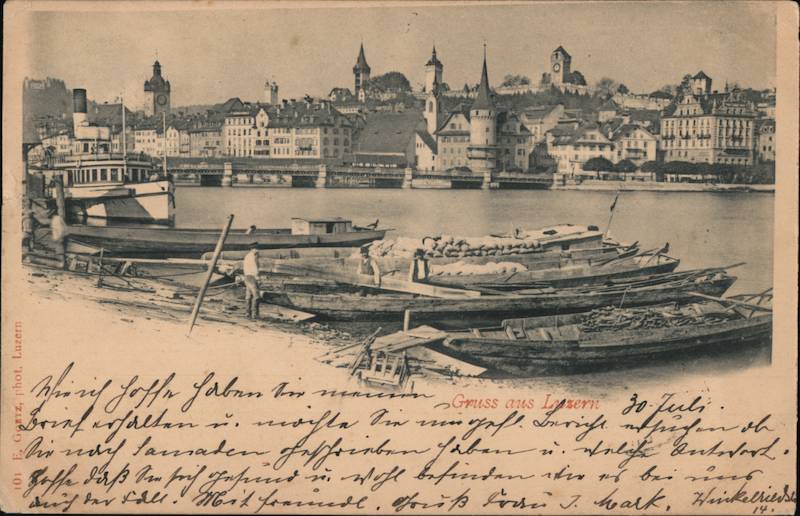 Gruss aus Luzern
30. Juli.
Wie ich hoffe haben Sie meinen
Brief erhalten u. möchte Sie um gefl. Bericht ersuchen ob
Sie nach Samaden geschrieben haben u. welche Antwort.
Hoffe daß Sie sich gesund u. wohl befinden wie es bei uns
auch der Fall. Mit freundl. Gruß Frau J. Mark. Winkelriedstr
14.
101 E. Goetz, phot. Luzern